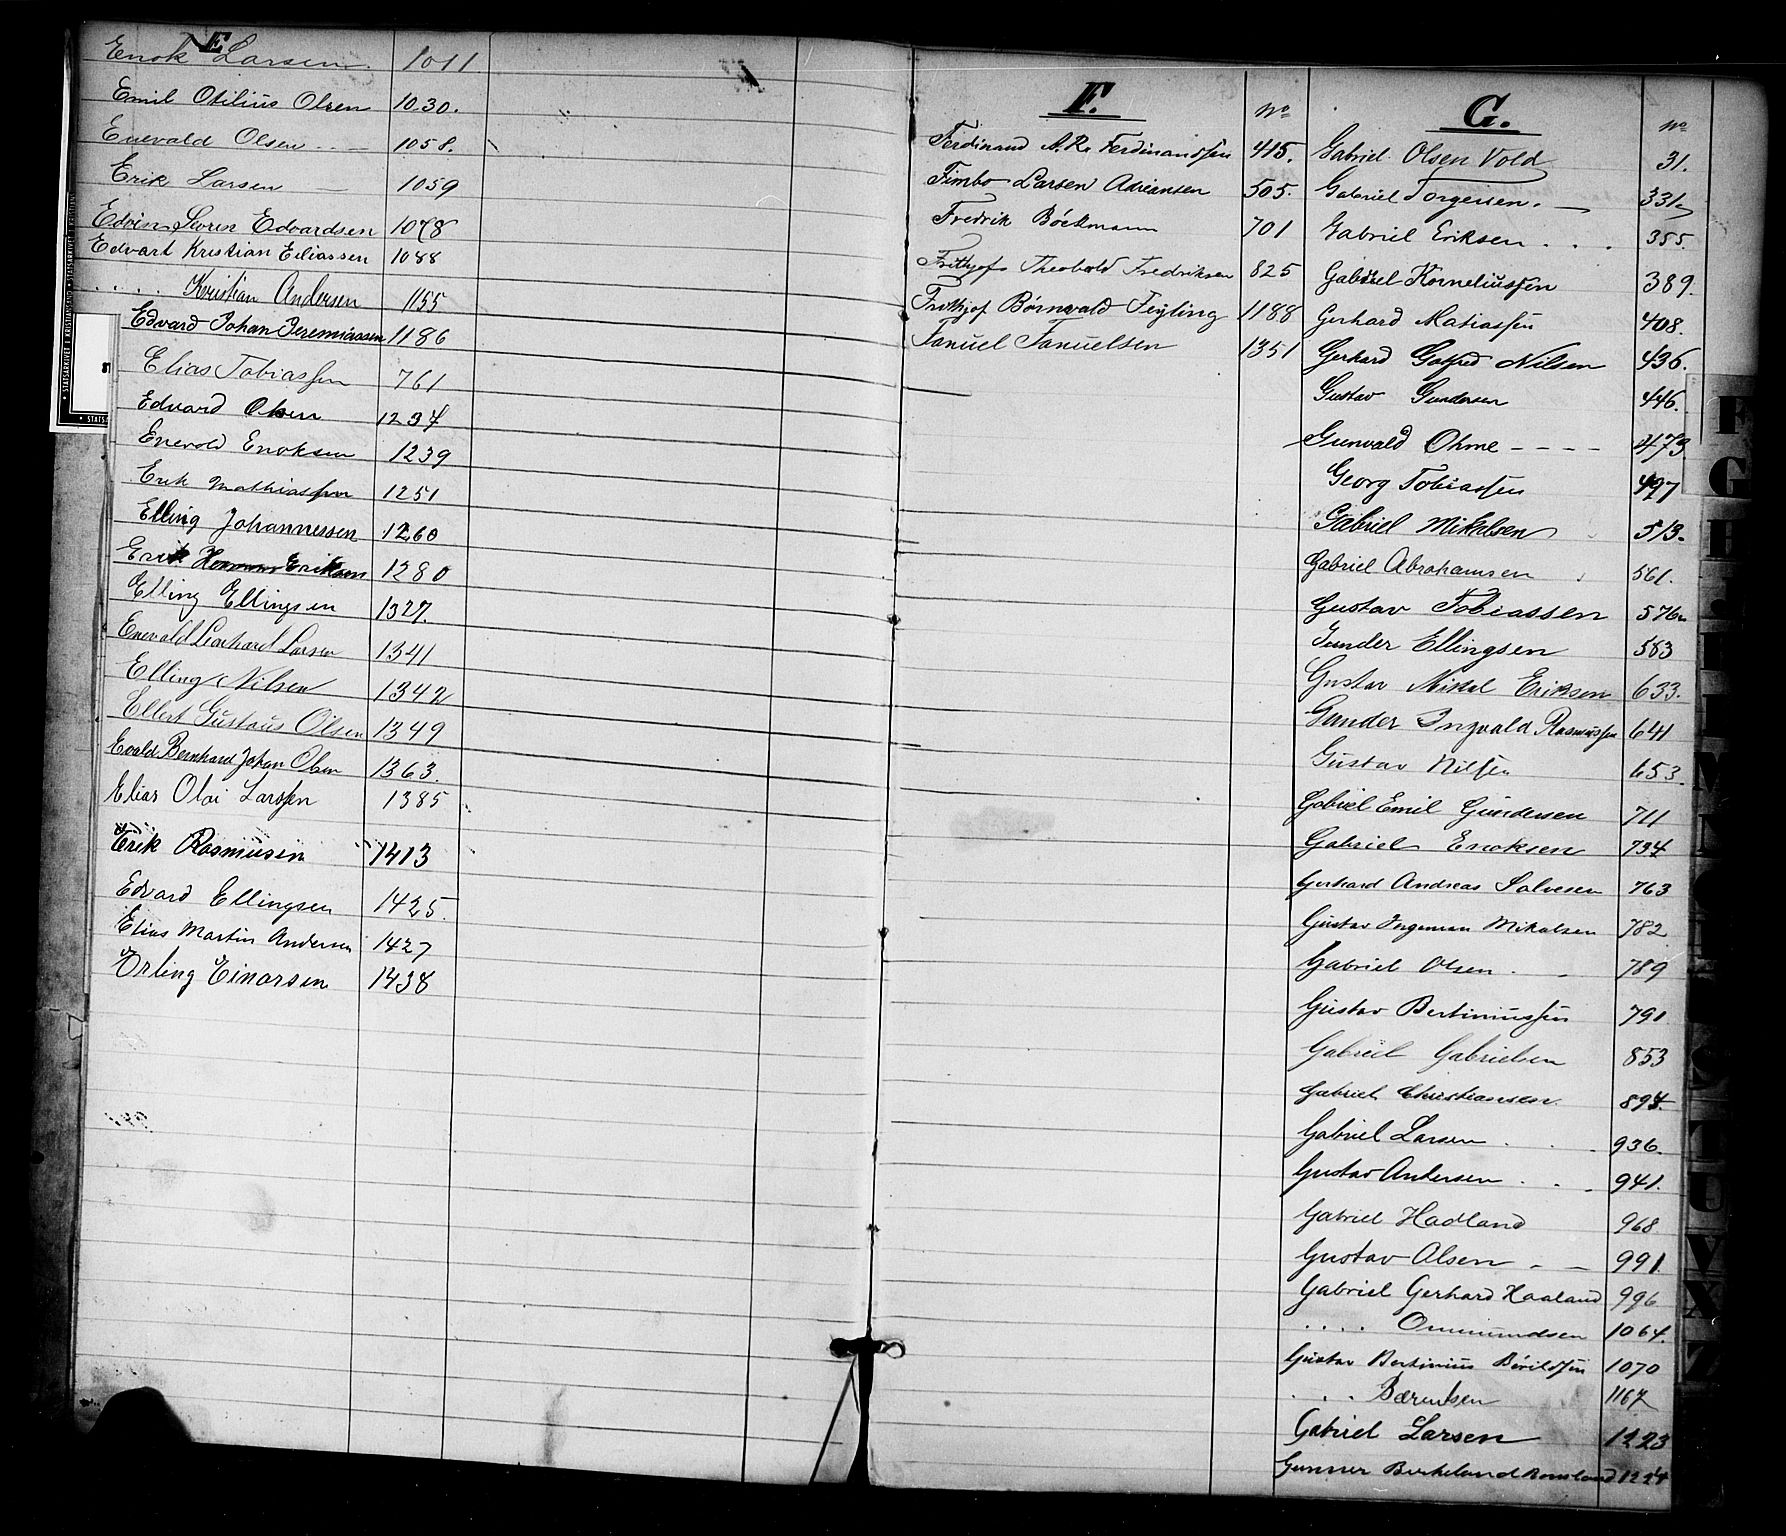 E
Enok Larsen 1011
Emil Otilius Olsen 1030.
Enevald Olsen 1058.
Erik Larsen 1059
Edvin Søren Edvardsen 1078
Edvart Kristian Eliassen 1088
. . . . Kristian Andersen 1155
Edvard Johan Jeremiassen 1186
Elias Tobiassen 761
Edvard Olsen 1234
Enevold Enoksen 1239
Erik Mathiassen 1251
Elling Johannessen 1260
Erik Eriksen 1280
Elling Ellingsen 1327.
Enevald Leonhard Larsen 1341
Elling Nilsen 1342
Ellert Gustavs Olsen 1349
Evald Bernhard Johan Olsen 1363.
Elias Olai Larssen 1385
Erik Rasmusen 1413
Edvard Ellingsen 1425
Elias Martin Andersen 1427
Erling Einarsen 1438
F. No
Ferdinand A. R. Ferdinandssen 415.
Fimbo Larsen Adriansen 505.
Fredrik Böckmann 701
Frithjof Theobald Fredriksen 825
Frithjof Børnvald Feyling 1188
Fanuel Fanuelsen 1351
G. No
Gabriel Olsen Vold 31.
Gabriel Torgersen. 331
Gabriel Eriksen . . . 355.
Gabriel Korneliussen 389.
Gerhard Matiassen 408.
Gerhard Gotfred Nilsen 436.
Gustav Gundersen 446.
Gunvald Ohme - - - - 473
Georg Tobiassen 497
Gabriel Mikalsen 513.
Gabriel Abrahamsen 561.
Gustav Tobiassen 576
Gunder Ellingsen 583
Gustav Mikal Eriksen 633.
Gunder Ingvald Rasmussen 641
Gustav Nilsen 653.
Gabriel Emil Gundersen 711
Gabriel Enoksen 734
Gerhard Andreas Salvesen 763
Gustav Ingeman Mikalsen 782
Gabriel Olsen. 789
Gustav Bertiniussen 791
Gabriel Gabrielsen 853
Gabriel Christiansen 894.
Gabriel Larsen . . . 936.
Gustav Andersen . . . 941.
Gabriel Hadland 968
Gustav Olsen - - 991
Gabriel Gerhard Haaland 996
. . . . Ommundsen 1064.
Gustav Bertinius 1070
. . . Bærentsen 1167
Gabriel Larsen 1223
Gunner Birkeland 1224